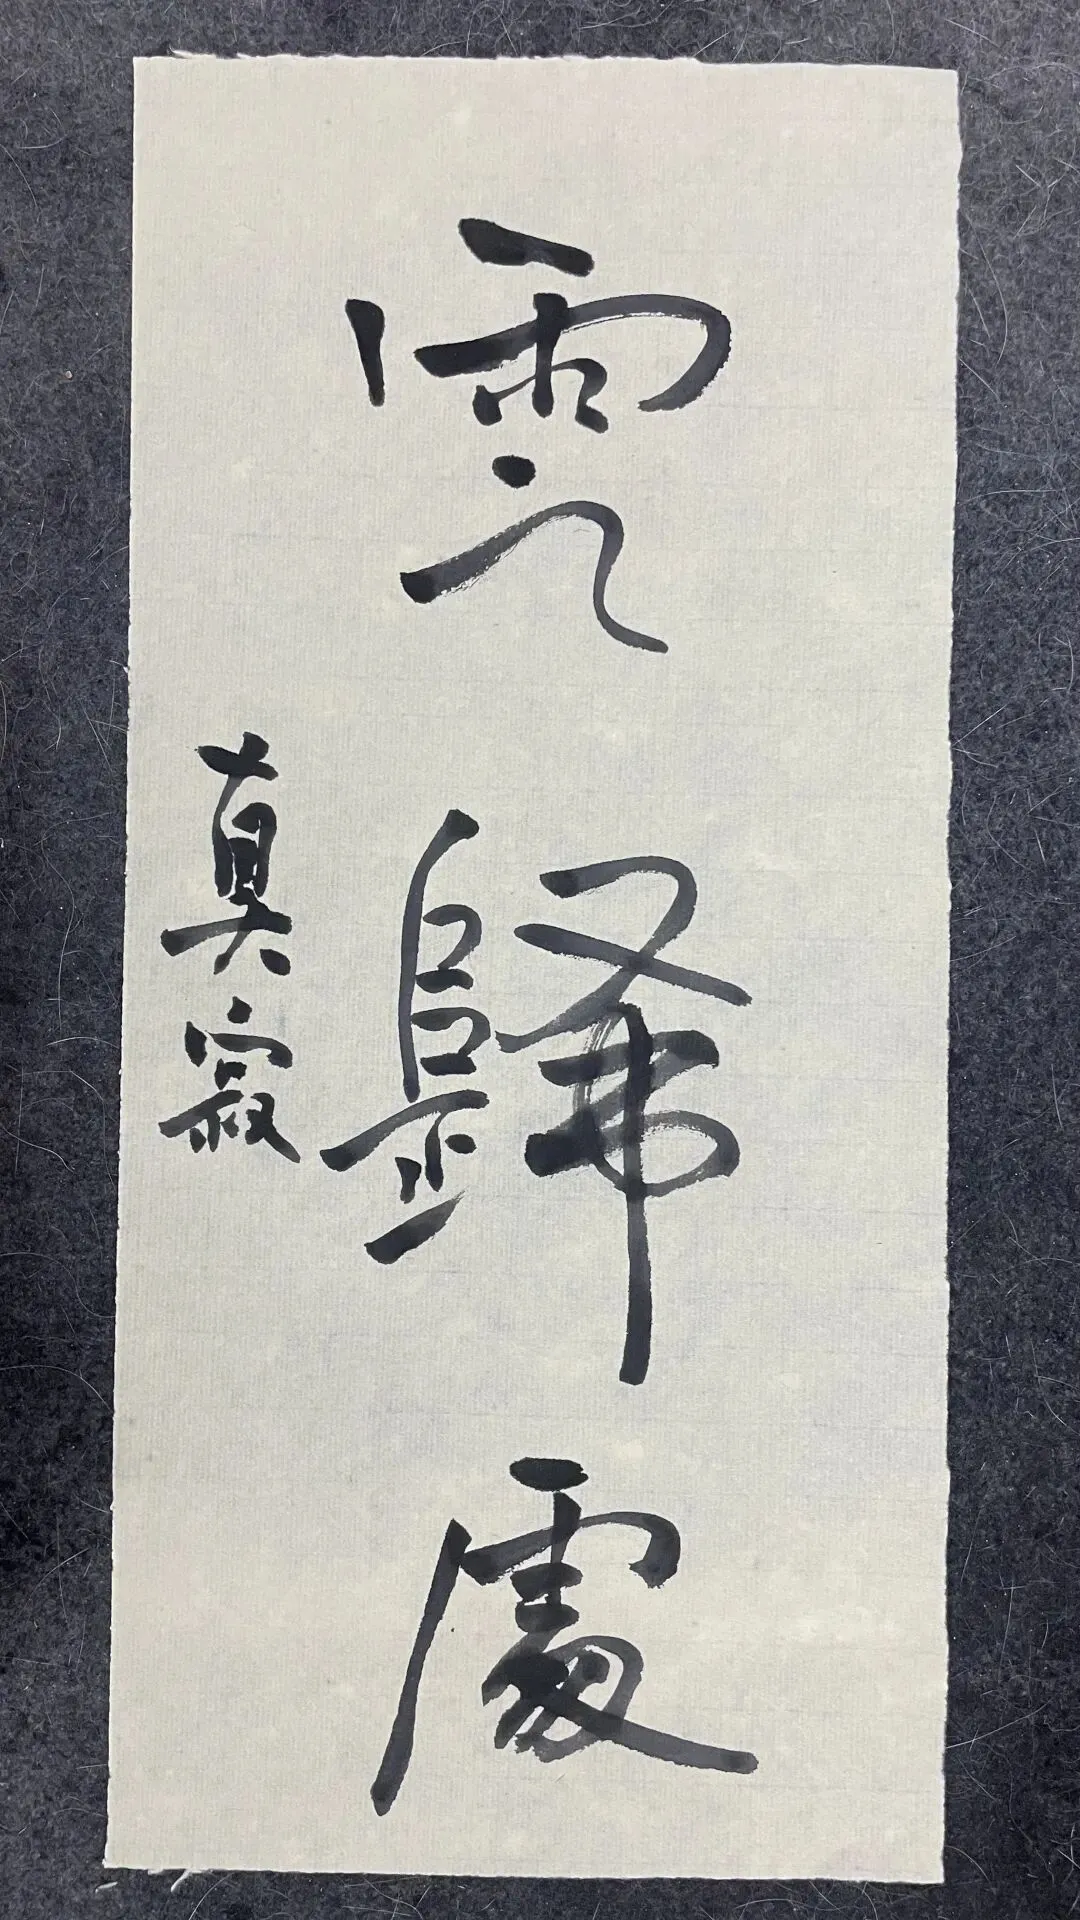 雲歸處
真寂